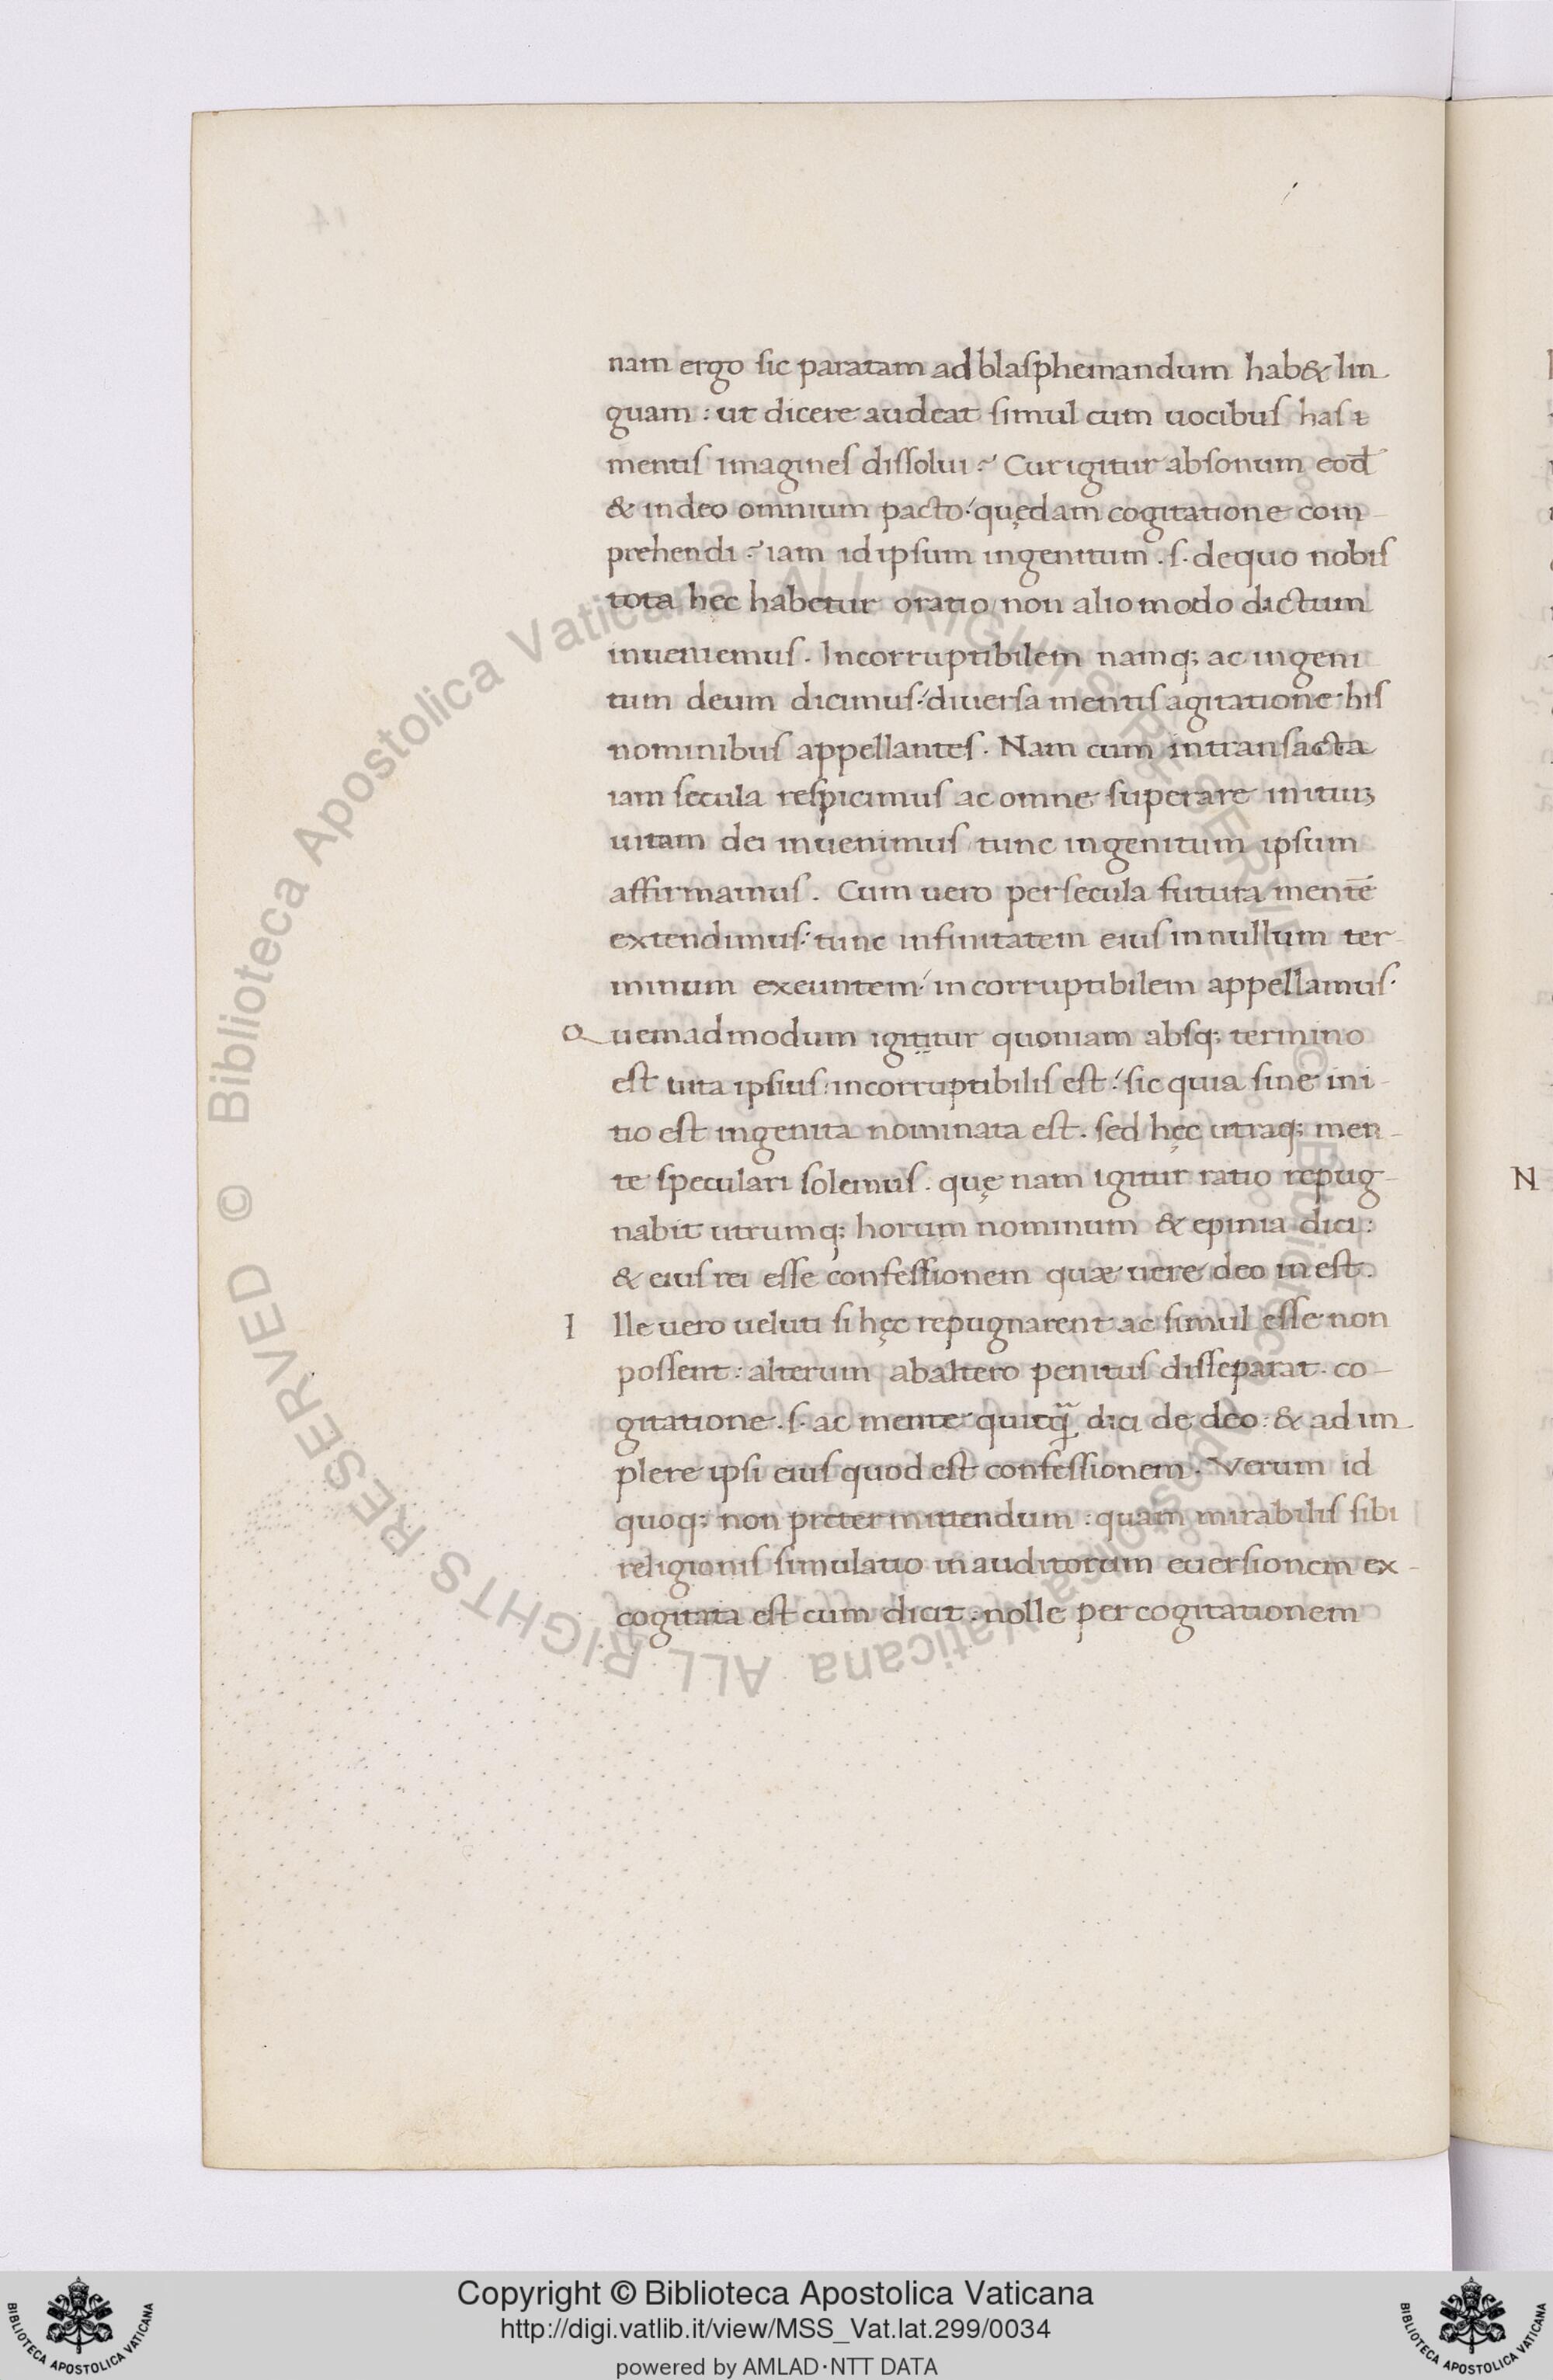 nam ergo sic paratam ad blasphemandum hab& lin
guam : ut dicere audeat simul cum uocibus has
mentis imagines dissolui? Cur igitur absonum eod̄
& in deo omnium pacto: quędam cogitatione com-
prehendi? iam id ipsum ingenitum .s. de quo nobis
tota hęc habetur oratio non alio modo dictum
inueniemus. Incorruptibilem namq; ac ingeni
tum deum dicimus: diuersa mentis agitatione his
nominibus appellantes. Nam cum in transacta
iam secula respicimus ac omne superare initiuꝫ
uitam dei inuenimus tunc ingenitum ipsum
affirmamus. Cum uero per secula futura mentē
extendimus: tunc infinitatem eius in nullum ter-
minum exeuntem: incorruptibilem appellamus.
Quemadmodum igititur quoniam absq; termino
est uita ipsius: incorruptibilis est: sic quia sine ini-
tio est ingenita nominata est. sed hęc utraq; men-
te speculari solemus. quę nam igitur ratio repug-
nabit utrumq; horum nominum & epinia dici:
& eius rei esse confessionem quæ uere deo inest.
Ille uero ueluti si hęc repugnarent ac simul esse non
possent: alterum ab altero penitus disseparat. co-
gitatione .s. ac mente quicq̄ dici de deo: & ad im
plere ipsi eius quod est confessionem. Verum id
quoq; non pretermittendum: quam mirabilis sibi
religionis simulatio in auditorum euersionem ex-
cogitata est cum dicit: nolle per cogitationem
N
© Biblioteca Apostolica Vaticana ALL RIGHTS RESERVED
© Biblioteca Apostolica Vaticana ALL RIGHTS RESERVED
Copyright © Biblioteca Apostolica Vaticana
http://digi.vatlib.it/view/MSS_Vat.lat.299/0034
powered by AMLAD·NTT DATA
BIBLIOTECA APOSTOLICA VATICANA
BIBLIOTECA APOSTOLICA VATICANA